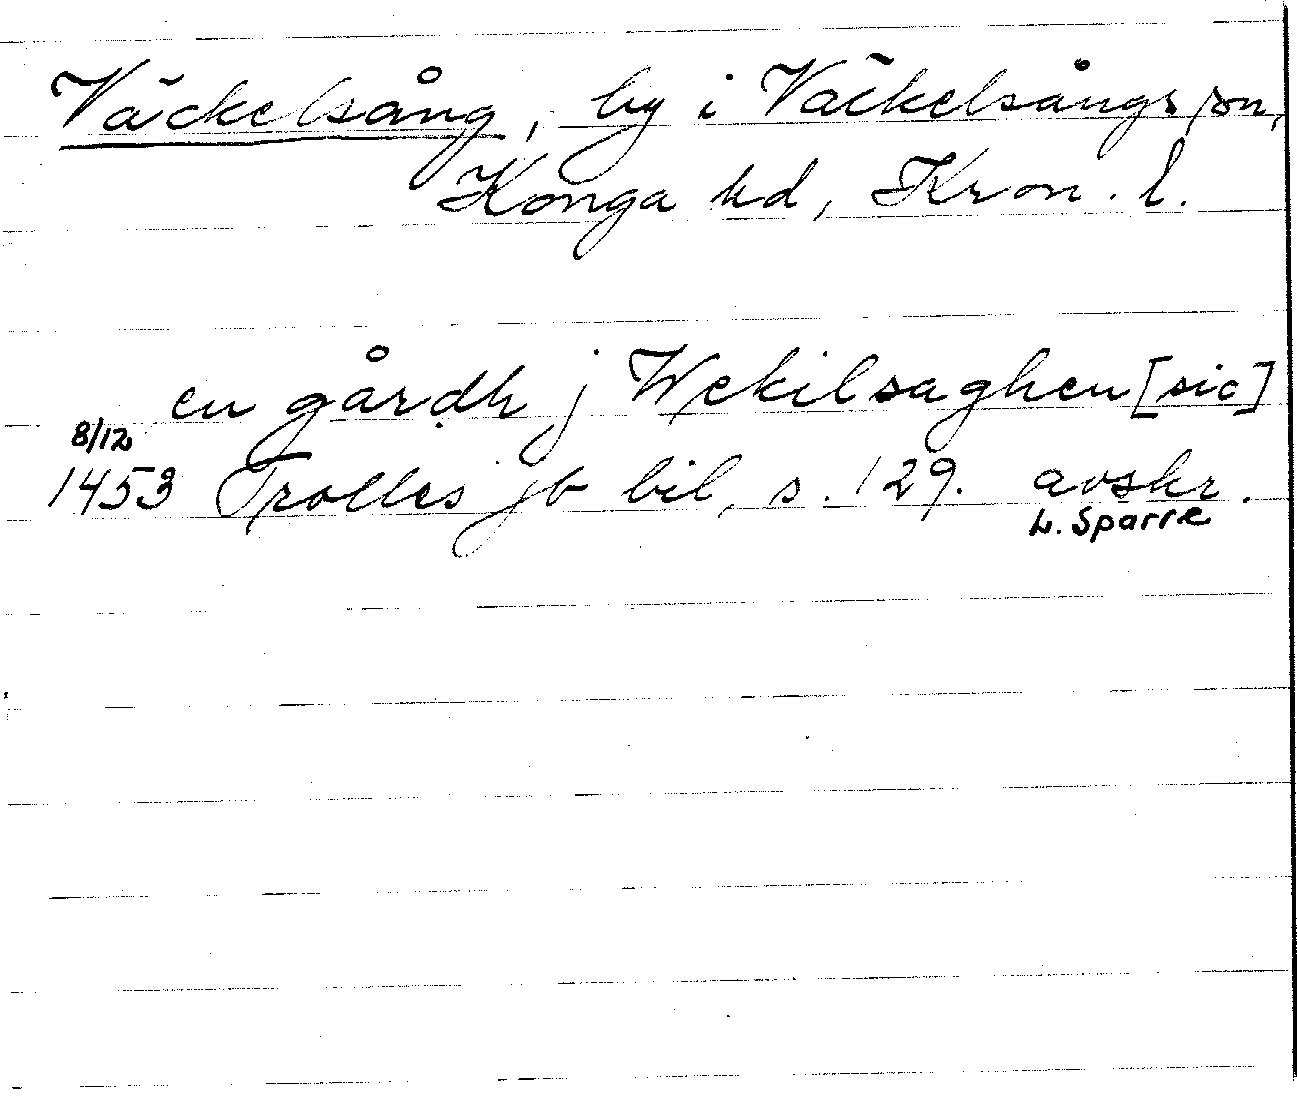 Väckelsång, by i Väckelsångs sn,
Konga hd, Kron. l.
en gårdh j Wekilsaghen [sic]
8/12
1453 Trolles jb bil, s. 129. avskr.
L. Sparre